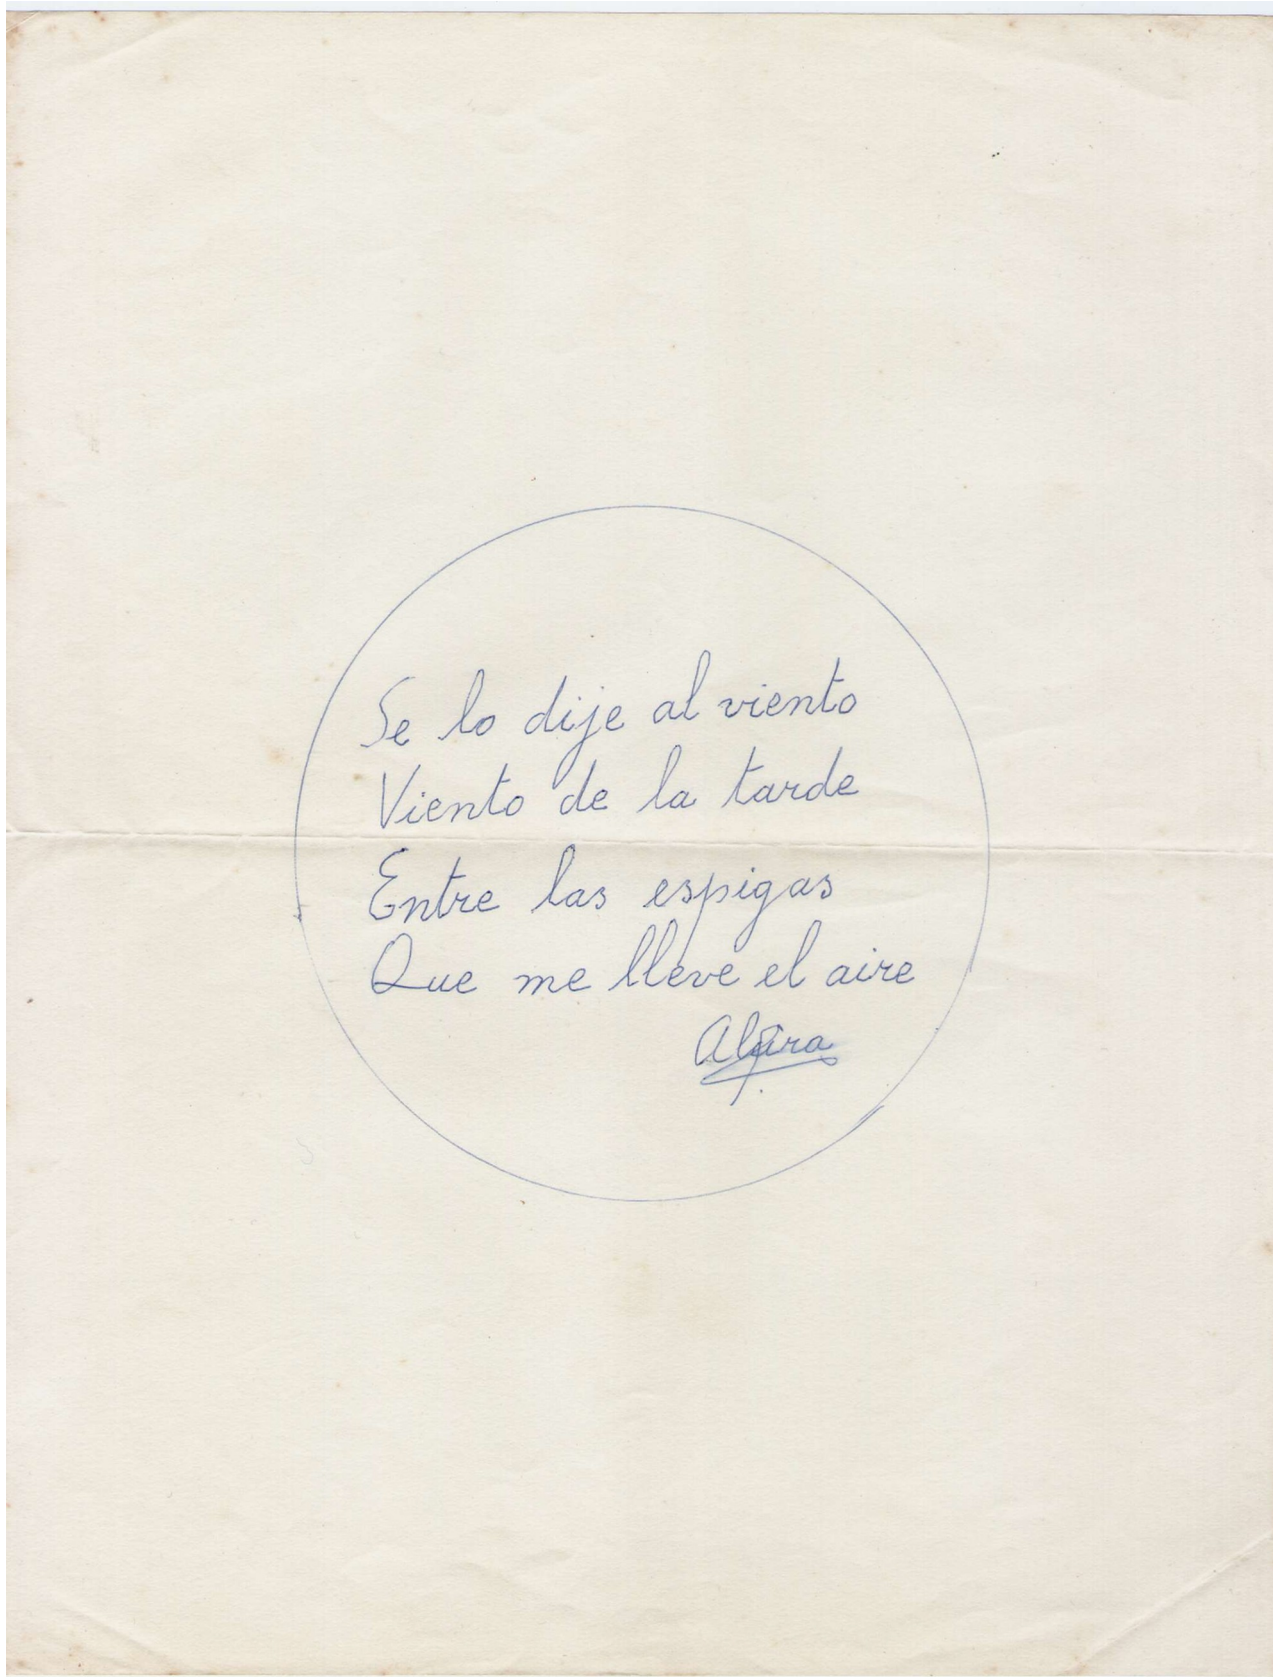 Se lo dije al viento
Viento de la tarde
Entre las espigas
Que me lleve el aire